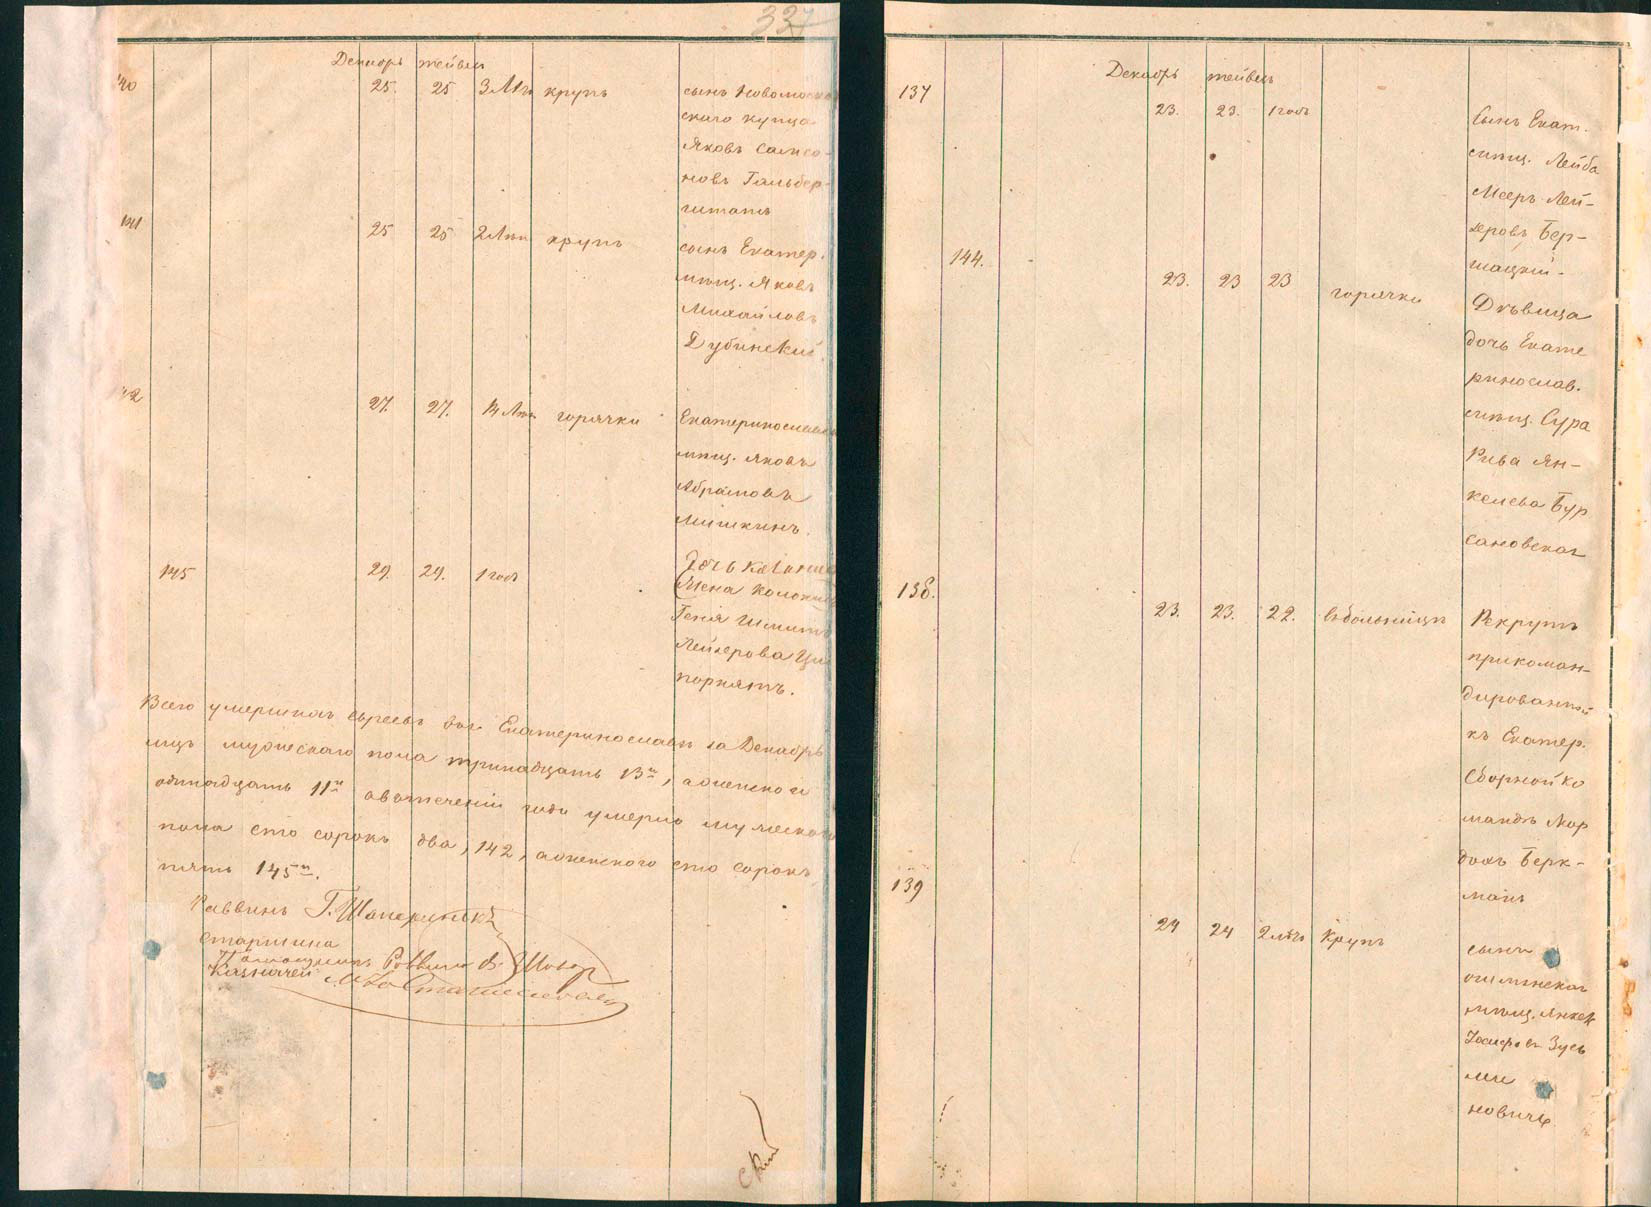 337
Декабрь тейвесъ
140 25. 25 3 Лѣтъ крупъ сынъ Новомоско
скаго купца
Яковъ Самсо-
новъ Гальбер-
штатъ
141 25 25 2 Лѣтъ крупъ сынъ Екатер.
мѣщ. Яковъ
Михайловъ
Дубинскій.
142 27. 27. 14 Лѣтъ горячки Екатеринославск
мѣщ. Яковъ
Абрамовъ
Мишкинъ.
145 29. 29. 1 годъ дочь
Жена Колонис
Геня
Лейзерова Ци
порнятъ.
Всего умершихъ евреевъ въ г. Екатеринославѣ за Декабрь
мцъ мужескаго пола тринадцать 13ть, а женскаго
одинадцать 11ть а въ теченіи года умерло мужескаго
пола сто сорокъ два, 142, а женскаго сто сорокъ
пять 145ть.
Раввинъ Г. Шаперинскъ
Старшина
Помощникъ Раввина В. Шовер
Казначей М.
Декабрь тейвесъ
137 23. 23. 1 годъ Сынъ Екат.
мѣщ. Лейба
Мееръ Лей-
зеровъ Бер-
шацкій.
144. 23. 23 23 горячки Дѣвица
дочь Екате
ринослав.
мѣщ. Сура
Рива Ян-
келева Бур
сановская
138. 23. 23. 22. въ больницѣ Рекрутъ
прикоман-
дированный
къ Екатер.
Сборной ко
мандѣ Мор
дохъ Берк-
манъ
139 24 24 2 лѣтъ Крупъ сынъ
ошмянскаг
мѣщ. Янкель
Іосифовъ Зусь
ми
новичъ